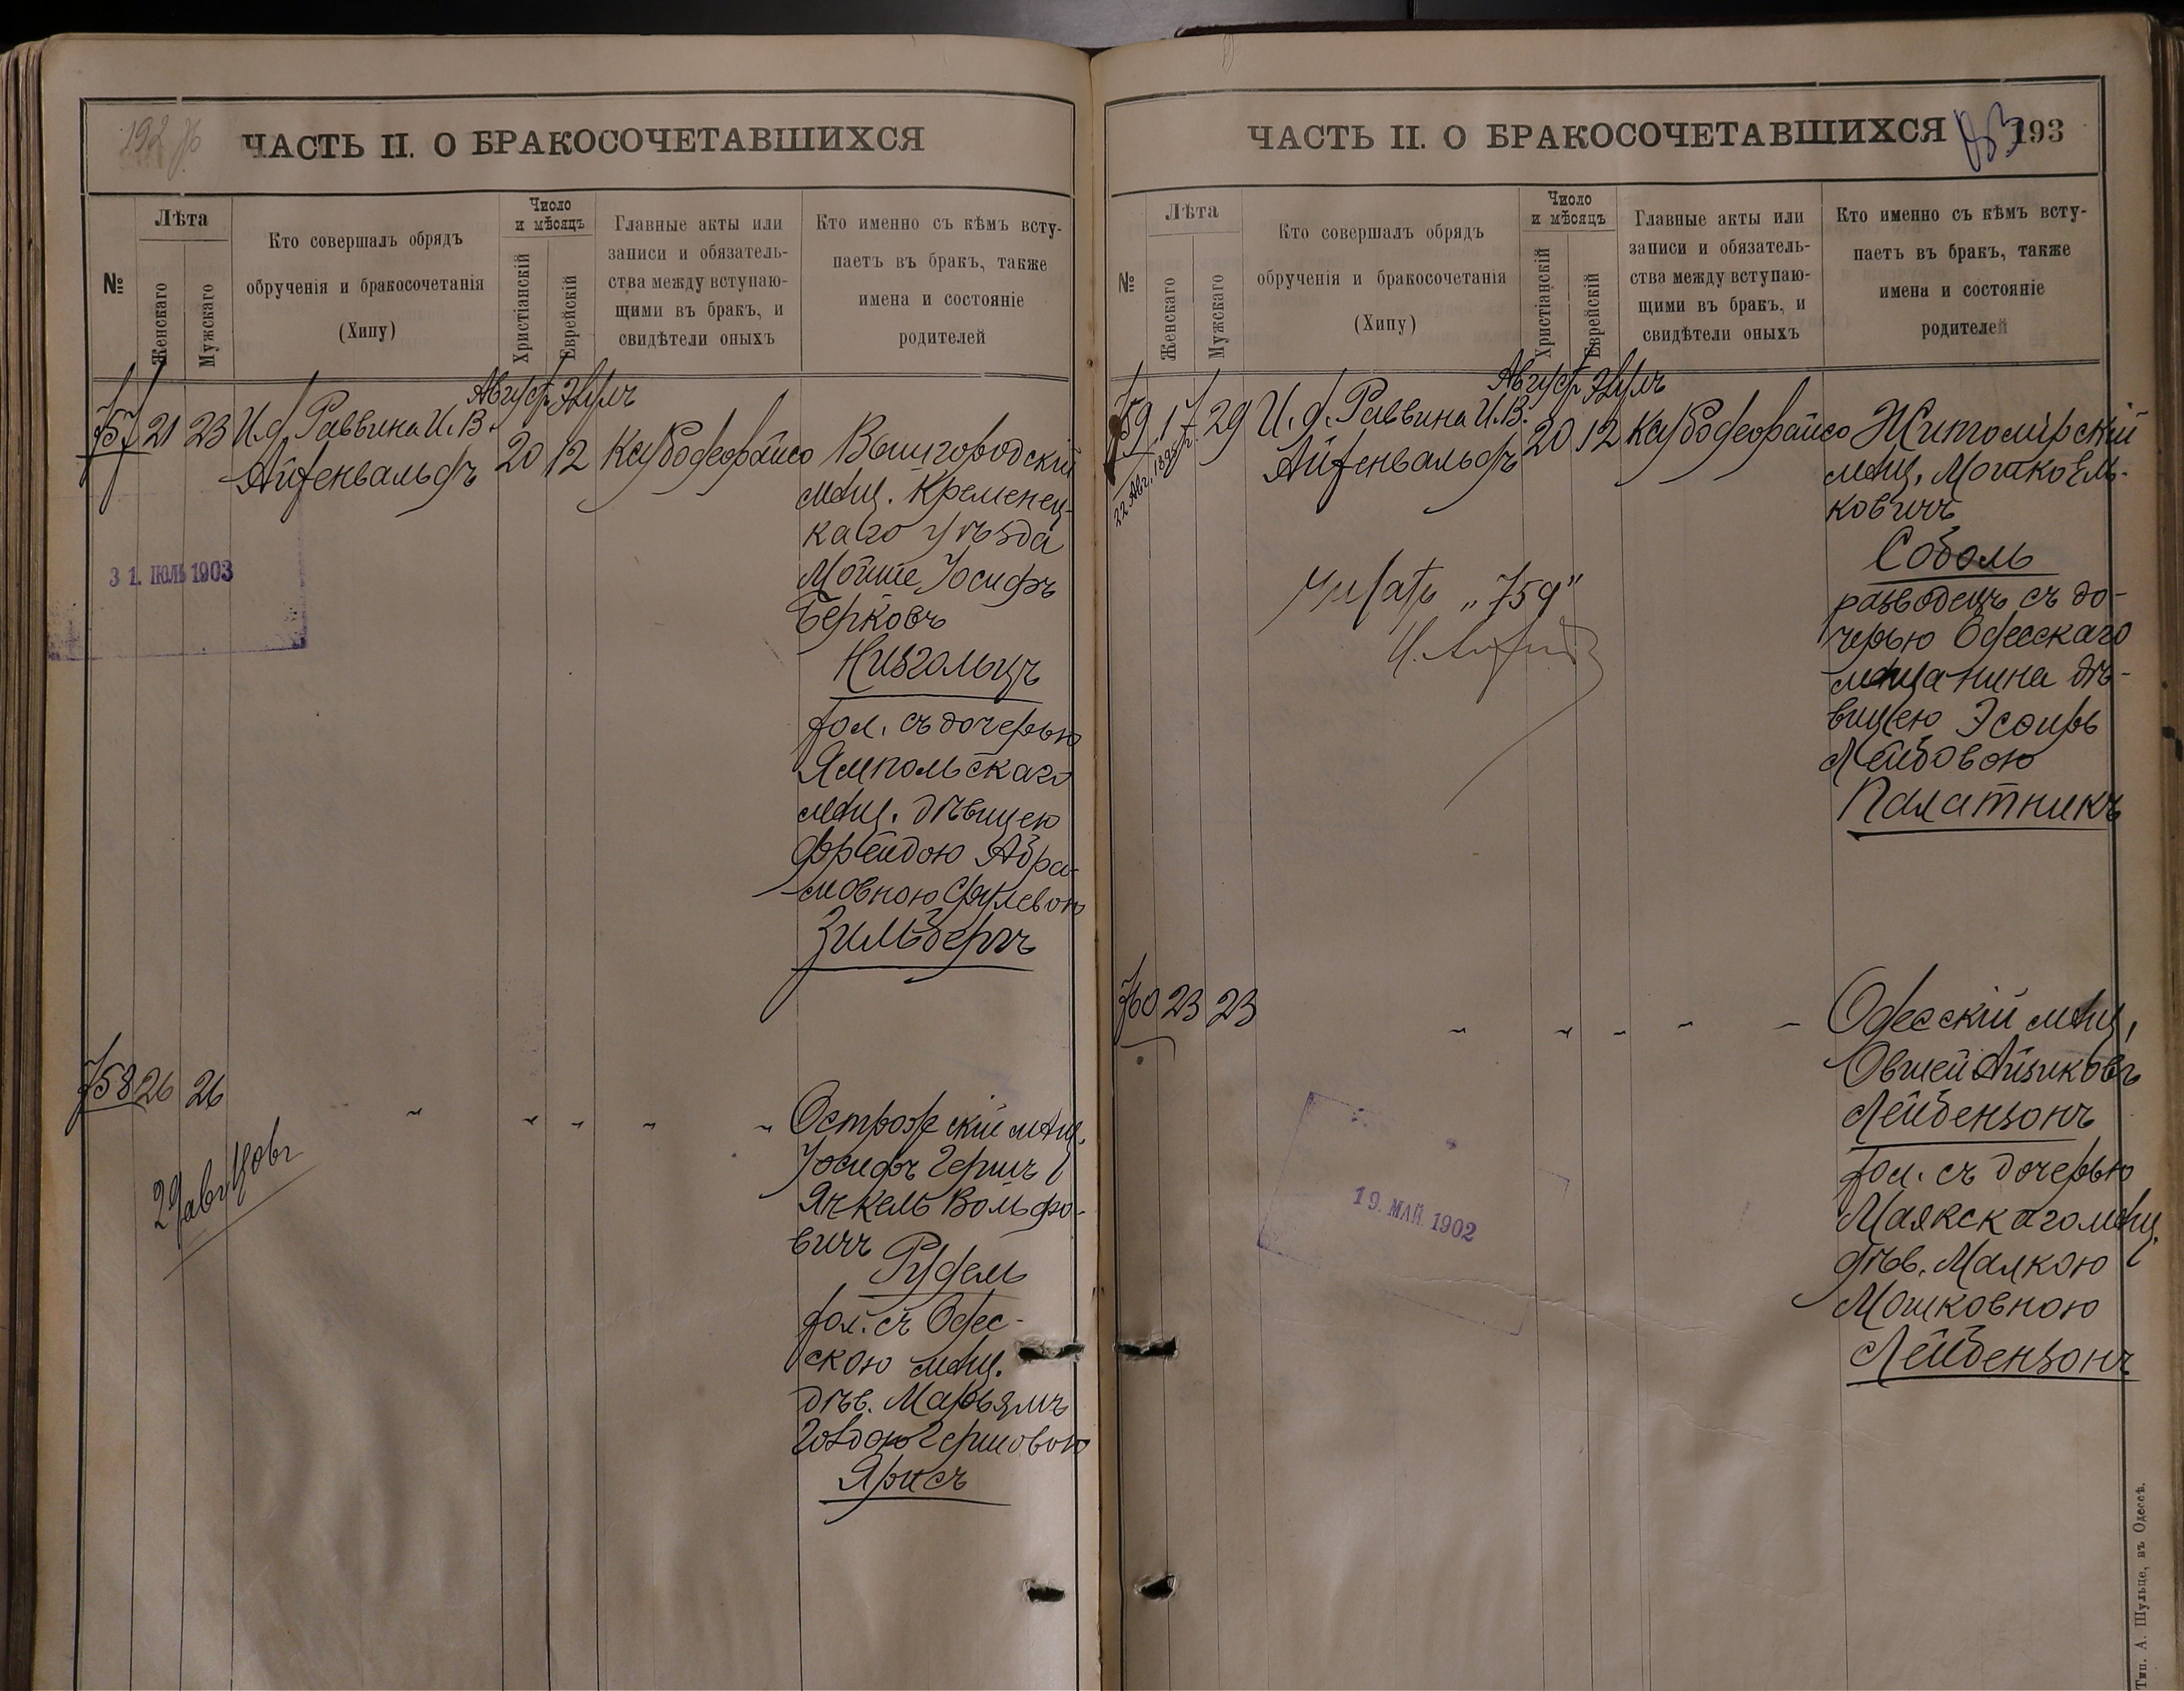 192 об
ЧАСТЬ II. О БРАКОСОЧЕТАВШИХСЯ
№
Лѣта
Женскаго
Мужскаго
Кто совершалъ обрядъ
обрученія и бракосочетанія
(Хипу)
Число
и мѣсяцъ
Христіанскій
Еврейскій
Главные акты или
записи и обязатель-
ства между вступаю-
щими въ бракъ, и
свидѣтели оныхъ
Кто именно съ кѣмъ всту-
паетъ въ бракъ, также
имена и состояніе
родителей
Августъ Элулъ
757 21 23 И. д. Раввина И. В.
Айзенвальдъ
20 12
Вышгородскій
мѣщ. Кременец-
каго уѣзда
Мойше Іосифъ
Берковъ
Нивгольцъ
хол. съ дочерью
Ямпольскаго
мѣщ. дѣвицею
Фрейдою Абра-
мовною
Зильберъ
31. ІЮЛЬ 1903
758 26 26
" " " " "
Острожскій мѣщ.
Іосифъ Гершъ
Янкель Вольфо-
вичъ
Рудель
хол. съ Одес-
скою мѣщ.
дѣв. Марьямъ
Голдою Гершовою
Ярисъ
ЧАСТЬ II. О БРАКОСОЧЕТАВШИХСЯ
193
№
Лѣта
Женскаго
Мужскаго
Кто совершалъ обрядъ
обрученія и бракосочетанія
(Хипу)
Число
и мѣсяцъ
Христіанскій
Еврейскій
Главные акты или
записи и обязатель-
ства между вступаю-
щими въ бракъ, и
свидѣтели оныхъ
Кто именно съ кѣмъ всту-
паетъ въ бракъ, также
имена и состояніе
родителей
Августъ Элулъ
759 17 29 И. д. Раввина И. В.
Айзенвальдъ
20 12
Житомірскій
мѣщ. Мошко Ель-
ковичъ
Соболь
разводецъ съ до-
черью Одесскаго
мѣщанина дѣ-
вицею Эсѳирь
Лейбовою
Палатникъ
Читать „759"
760 23 23
" " " " "
Одесскій мѣщ.
Овшей Айзиковъ
Лейбензонъ
хол. съ дочерью
Маякскаго мѣщ.
дѣв. Малкою
Мошковною
Лейбензонъ
19. МАЙ. 1902
Тип. А. Шульце, въ Одессѣ.